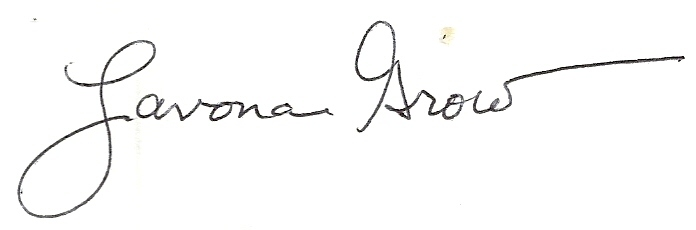 Lavona Grow